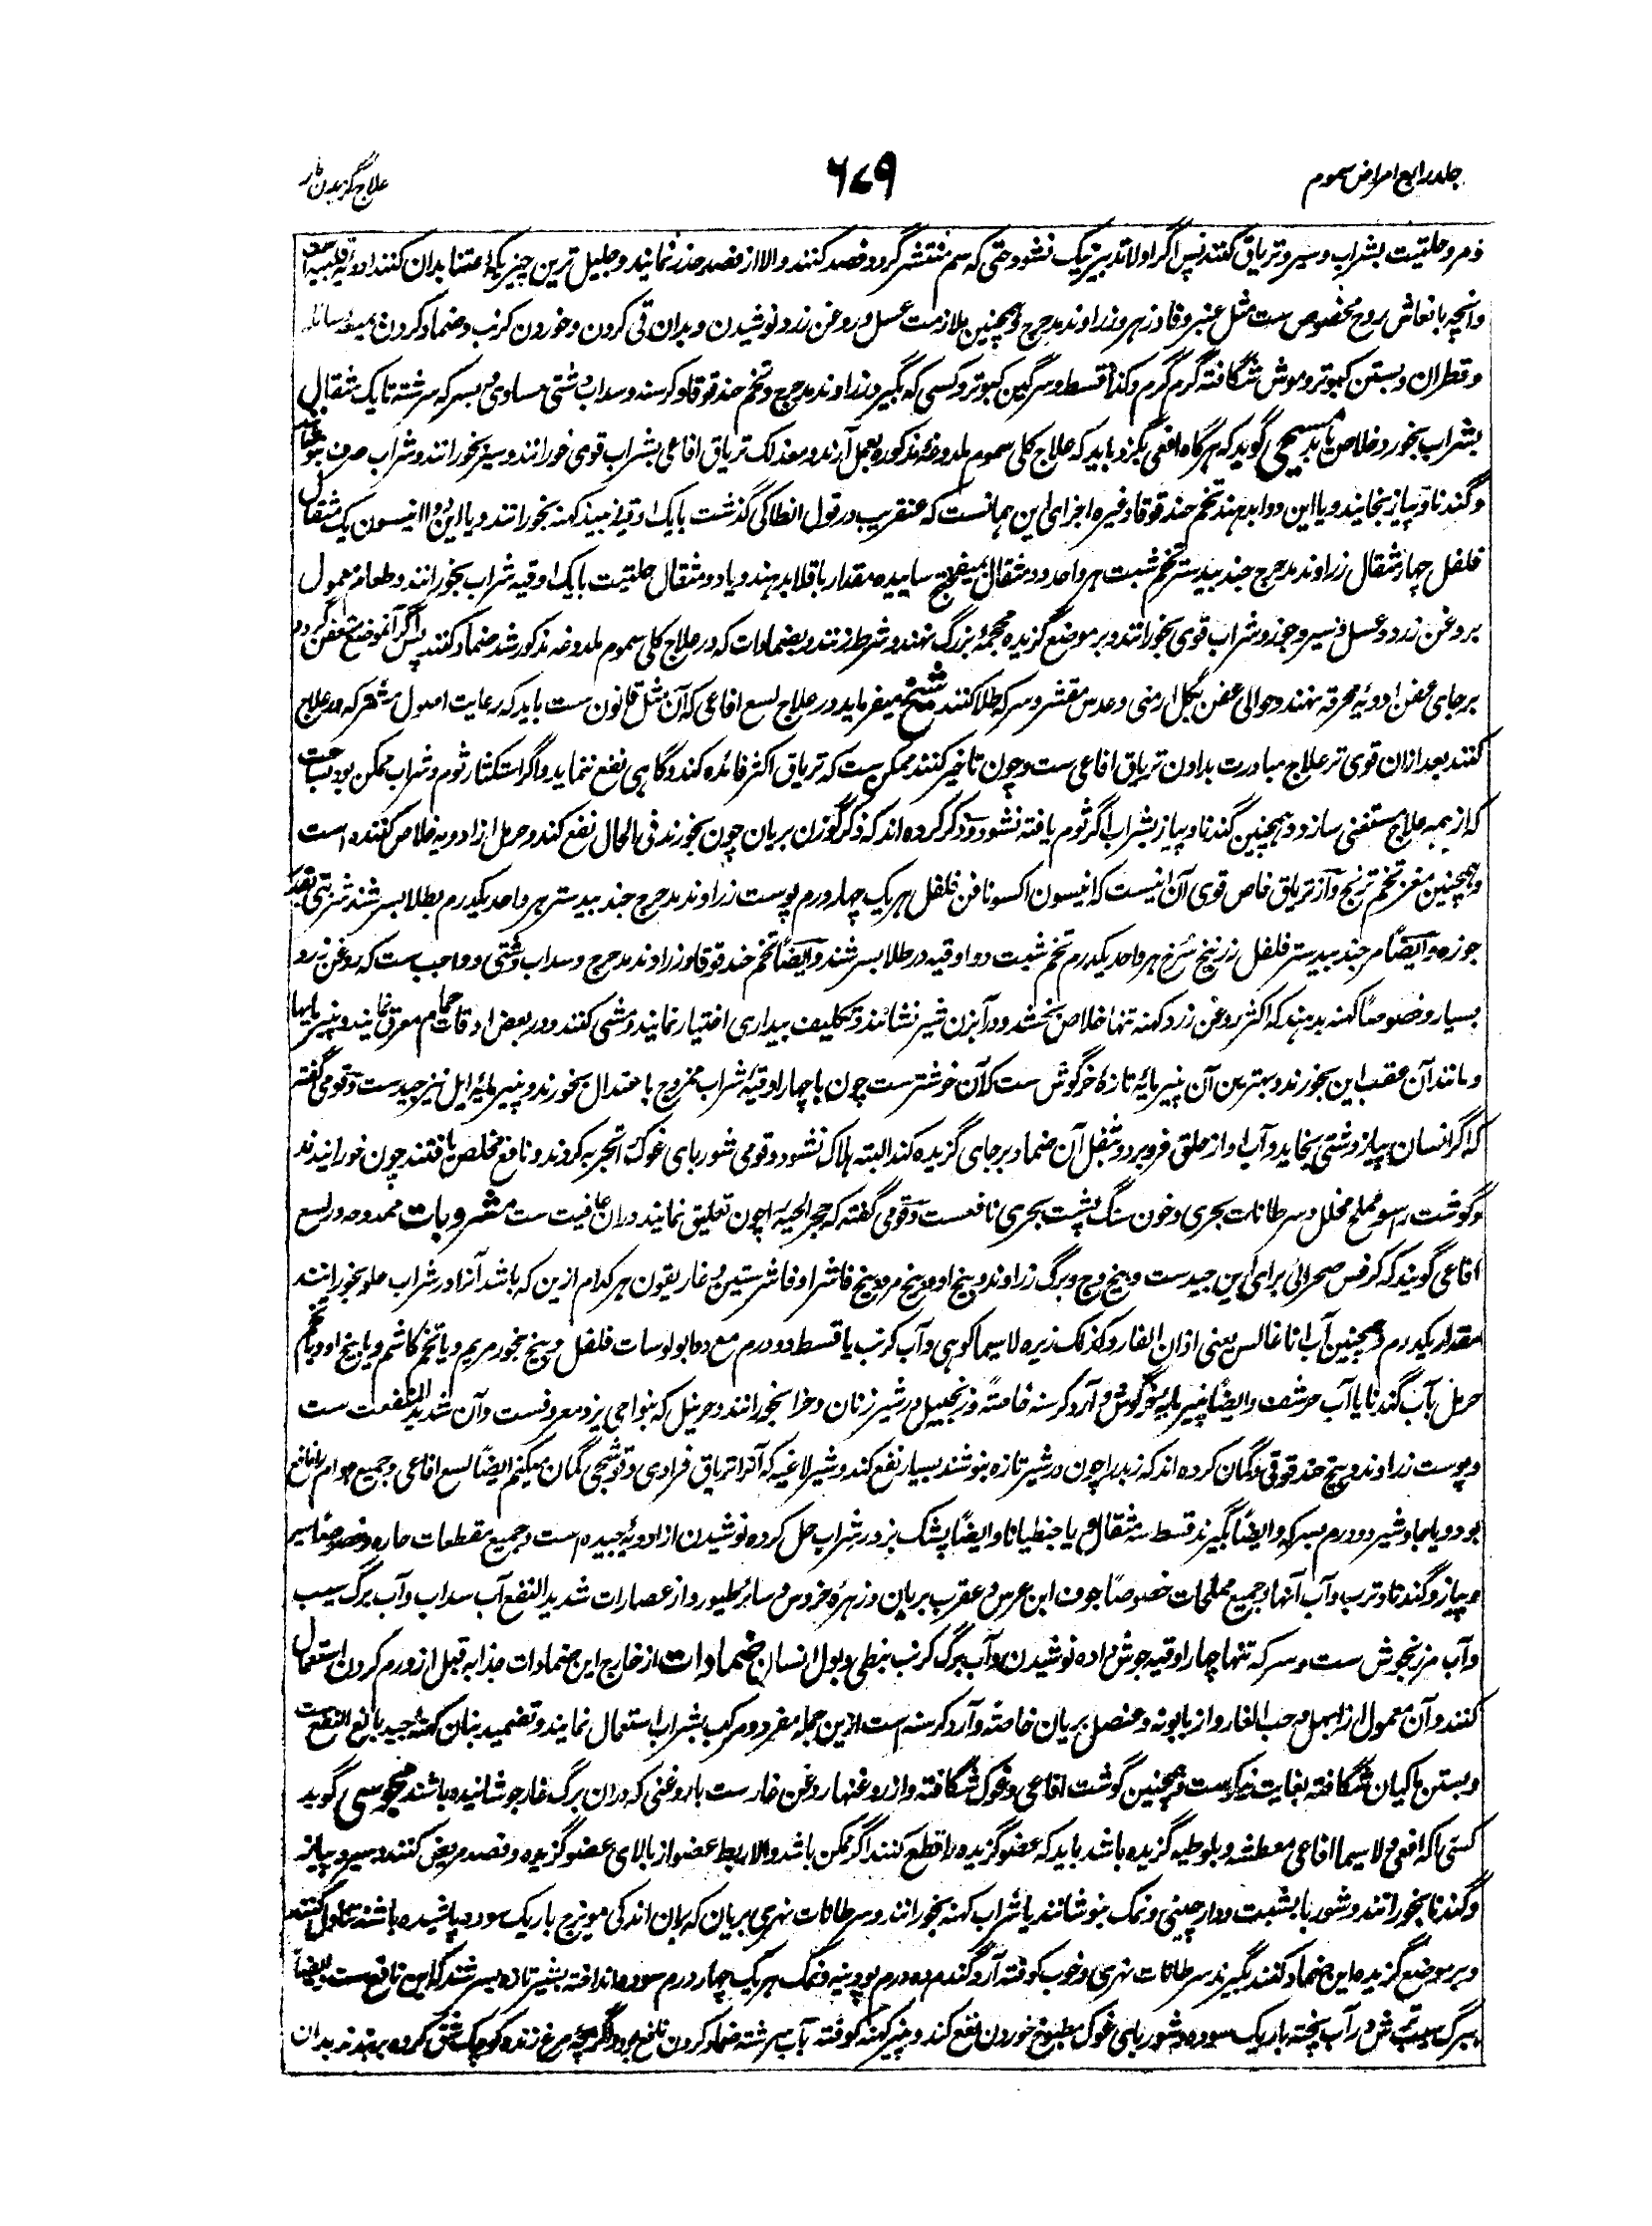 جلد رابع امراض سموم
۶۷۹
علاج گزیدن مار
و مر و حلتیت بشراب و سیر و تریاق کنند پس اگر اولا تدبیر نیک نشود حتی که سم منتشر گردد فصد کنند والا از فصد حذر نمایند و جلیل ترین چیزیکه اعتنا بدان کنند ادویه قلبیه است
وانچه بانعاش روح مخصوص ست مثل عنبر و فادزهر و زراوند مدحرج و همچنین ملازمت عسل و روغن زرد نوشیدن و بدان قی کردن و خوردن کرنب و ضماد کردن
و قطران و بستن کبوتر و موش شگافته گرم گرم و کذا قسط و سرگین کبوتر و کسی که بگیرد زراوند مدحرج و تخم حندقوقا و کرسنه و سداب دشتی مساوی و بسرکه سرشته تا یک مثقال
بشراب بخورد خلاص یابد مسیحی گوید که هرگاه افعی بگزد باید که علاج کلی سموم ملدوغه مذکوره بعمل آرند و معذلک تریاق افاعی بشراب قوی خورانند و سیر بخورانند و شراب صرف بنوشانند
و گندنا و پیاز بخایند و یا این دوا بدهند تخم حندقوقا وغیره اجزای این همانست که عنقریب در قول انطاکی گذشت با یک اوقیه نبیذ کهنه بخورانند و یا این دوا انیسون یک مثقال
فلفل چهار مثقال زراوند مدحرج جندبیدستر تخم شبت هر واحد دو مثقال بمیفختج ساییده مقدار باقلا بدهند و یا دو مثقال حلتیت با یک اوقیه شراب بخورانند و طعام معمول
بروغن زرد و عسل و سیر و جوز و شراب قوی بخورانند و بر موضع گزیده محجمه بزرگ نهند و شرط زنند و بضمادات که در علاج کلی سموم ملدوغه مذکور شد ضماد کنند پس اگر آنموضع متعفن گردد
بر جای عفن ادویه محرقه نهند و حوالی عفن بگل ارمنی و عدس مقشر و سرکه طلا کنند شیخ میفرماید در علاج لسع افاعی که آن مثل قانون ست باید که رعایت اصول مشترکه در علاج
کنند بعد ازان قوی تر علاج مبادرت بدادن تریاق افاعی ست و چون تاخیر کنند ممکن ست که تریاق اکثر فائده کند و گاهی نفع ننماید و اگر استکثار ثوم و شراب ممکن بود بساست
که از همه علاج مستغنی سازد و همچنین گندنا و پیاز بشراب اگر ثوم یافته نشود و ذکر کرده اند که ذکر گوزن بریان چون بخورند فی الحال نفع کند و حرمل از ادویه خلاص کننده است
و همچنین مغز تخم ترنج و از تریاق خاص قوی آن اینست که انیسون اکسونافن فلفل هر یک چهار درم پوست زراوند مدحرج جندبیدستر هر واحد یکدرم بطلا بسرشند شربتی بقدر
جوزه و ایضاً مر جندبیدستر فلفل زرنیخ سرخ هر واحد یکدرم تخم شبت دو اوقیه در طلا بسرشند و ایضاً تخم حندقوقا و زراوند مدحرج و سداب دشتی و واجب ست که روغن زرد
بسیار و خصوصاً کهنه بدهند که اکثر روغن زرد کهنه تنها خلاص بخشد و در آبزن شیر نشانند و تکلیف بیداری اختیار نمایند و مشی کنند و در بعض اوقات حمام معرق نمایند و پنیر مایها
و مانند آن عقب این بخورند و بهترین آن پنیر مایه تازه خرگوش ست که آن خوشترست چون با چهار اوقیه شراب ممزوج باعتدال بخورند و پنیر مایه ایل نیز جیدست و قومی گفته
که اگر انسان پیاز دشتی بخاید و آب او از حلق فرو برد و ثفل آن ضماد بر جای گزیده کند البته هلاک نشود و قومی شوربای غوک را تجربه کردند و نافع مخلص یافتند چون خورانیدند
و گوشت راسو مملح مخلل و سرطانات بحری و خون سنگ پشت بحری نافعست و قومی گفته که حجر الحیه را چون تعلیق نمایند دران عافیت ست مشروبات ممدوحه در لسع
افاعی گویند که کرفس صحرائی برای این جیدست و بیخ وج و برگ زراوند و بیخ او و بیخ مرو و بیخ فاشرا و فاشرستین و غاریقون هر کدام ازین که باشد آنرا در شراب حلو بخورانند
مقدار یکدرم و همچنین آب اناغالس یعنی آذان الفار و کذلک زیره لاسیما کوهی و آب کرنب یا قسط دو درم مع دو ابولوسات فلفل و بیخ بخور مریم و یا تخم کاشم و یا بیخ او و یا تخم
حرمل بآب گندنا یا آب حرشف و ایضاً پنیر مایه خرگوش و آرد کرسنه خاصةً و زنجبیل در شیر زنان و خرا بخورانند و حرنبل که بنواحی یزد معروفست و آن شدید المنفعت ست
و پوست زراوند و بیخ حندقوقی و گمان کرده اند که زبد را چون در شیر تازه بنوشند بسیار نفع کند و شیر لاغیه که آنرا تریاق فراوی و توشجی گمان میکنم ایضاً لسع افاعی و جمیع هوام را نافع
بود و یا جاوشیر دو درم بسرکه و ایضاً بگیرند قسط سه مثقال و یا جنطیانا و ایضاً پشک بز در شراب حل کرده نوشیدن از ادویه جیده است و جمیع مقطعات حاره و خصوصاً سیر
و پیاز و گندنا و ترب و آب آنها و جمیع مملحات خصوصاً جوف ابن عرس و عقرب بریان و زهره خروس و سائر طیور و از عصارات شدید النفع آب سداب و آب برگ سیب
و آب مرزنجوش ست و سرکه تنها چهار اوقیه جوش داده نوشیدن و آب برگ کرنب نبطی و بول انسان ضمادات از خارج این ضمادات جذابه قبل از ورم کردن استعمال
کنند و آن معمول از ابهل و حب الغار و از بابونه و عنصل بریان خاصةً و آرد کرسنه است ازین جمله مفرد و مرکب بشراب استعمال نمایند و تضمید بنان کهنه جید بالغ النفع ست
و بستن ماکیان شگافته بغایت نیکوست و همچنین گوشت افاعی و غوک شگافته و از روغنها روغن غار ست یا روغنی که دران برگ غار جوشانیده باشند مجوسی گوید
کسی را که افعی و لاسیما افاعی معطشه و بلوطیه گزیده باشد باید که عضو گزیده را قطع کنند اگر ممکن باشد والا ربط عضو از بالای عضو گزیده و فصد مریض کنند و سیر و پیاز
و گندنا بخورانند و شوربا بشبت و دارچینی و نمک بنوشانند یا شراب کهنه بخورانند و سرطانات نهری بریان که بران اندکی مویزج باریک سوده پاشیده باشند تناول کنند
و بر موضع گزیده این ضماد کنند بگیرند سرطانات نهری و خوب کوفته آرد گندم ده درم پودینه و نمک هر یک چهار درم سوده انداخته بشیر تازه بسرشند که این نافع ست ایضاً
برگ سیب ترش در آب پخته باریک سوده و شوربای غوک مطبوخ خوردن نفع کند و پنیر کهنه کوفته بآب سرشته ضماد کردن نافع بود و اگر بچه مرغ زنده کوچک شق کرده ببندند بدان